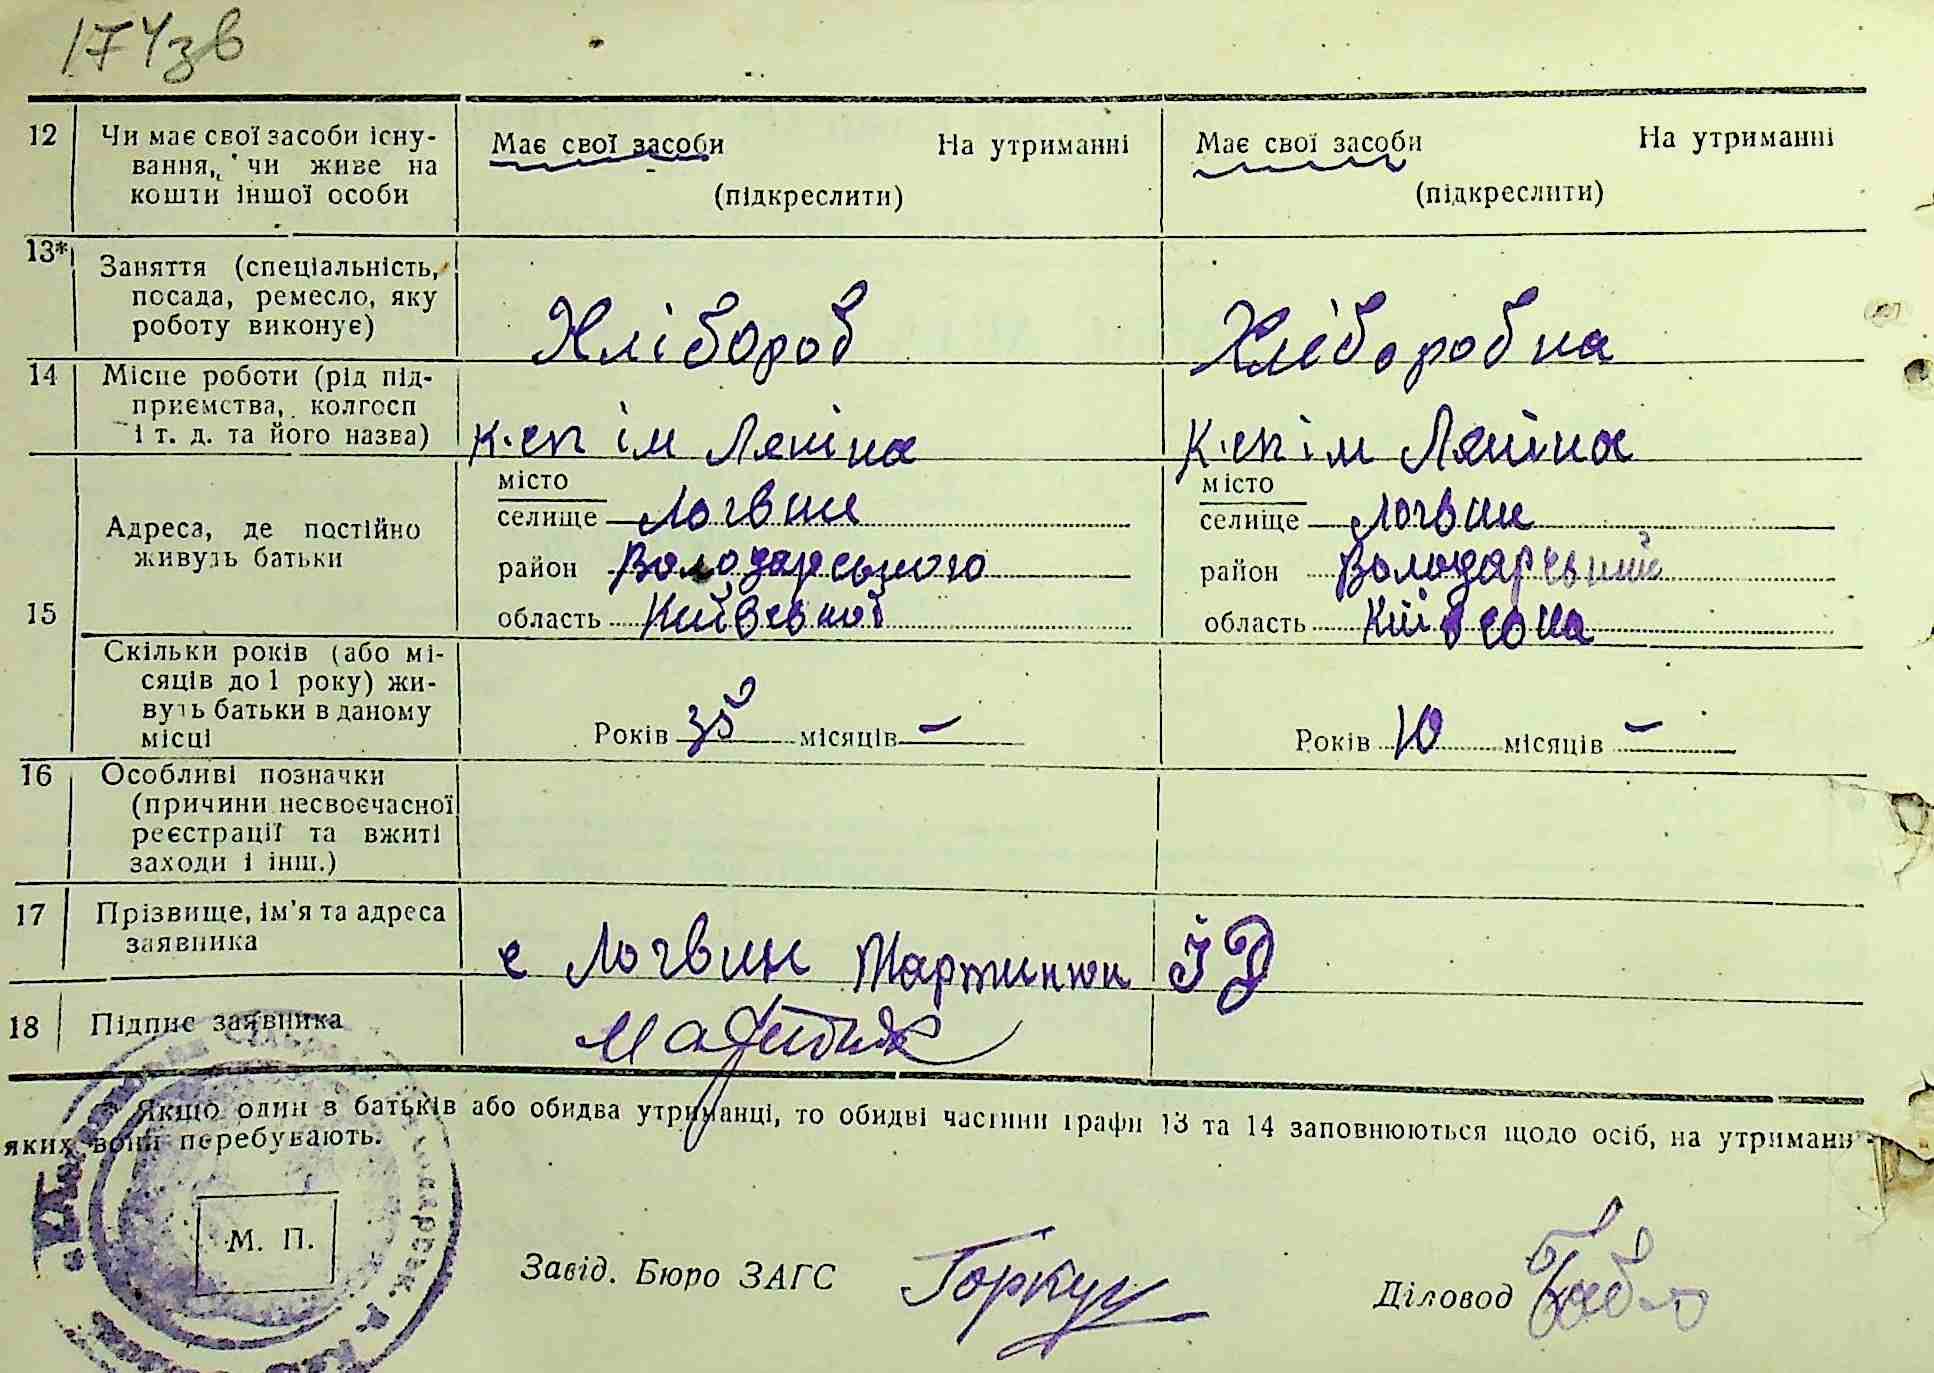 174зв
12 Чи має свої засоби існу-
вання, чи живе на
кошти іншої особи
Має свої засоби На утриманні
(підкреслити)
Має свої засоби На утриманні
(підкреслити)
13* Заняття (спеціальність,
посада, ремесло, яку
роботу виконує)
Хлібороб
Хліборобка
14 Місце роботи (рід під-
приємства, колгосп
і т. д. та його назва)
к.сп ім Леніна
к.сп ім Леніна
15 Адреса, де постійно
живуть батьки
місто
селище Логвин
район Володарського
область Київської
місто
селище Логвин
район Володарський
область Київська
Скільки років (або мі-
сяців до 1 року) жи-
вуть батьки в даному
місці
Років 35 місяців —
Років 10 місяців —
16 Особливі позначки
(причини несвоєчасної
реєстрації та вжиті
заходи і інш.)
17 Прізвище, ім'я та адреса
заявника
с Логвин Мартинюк І Д
18 Підпис заявника
* Якщо один з батьків або обидва утриманці, то обидві частини графи 13 та 14 заповнюються щодо осіб, на утриманні
яких вони перебувають.
М. П.
Завід. Бюро ЗАГС
Діловод